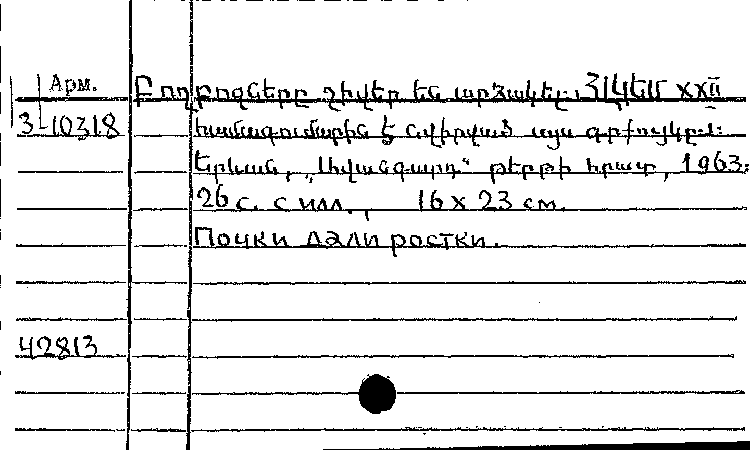 Арм.
Բողբոջները շիվեր են արձակել. ՀԼԿԵՄ XXII
3-10318
համագումարին է նվիրված այս գրքույկը:
Երևան, „Ավանգարդ“ թերթի հրատ, 1963:
26 с. с илл., 16 x 23 см.
Почки дали ростки.
42813